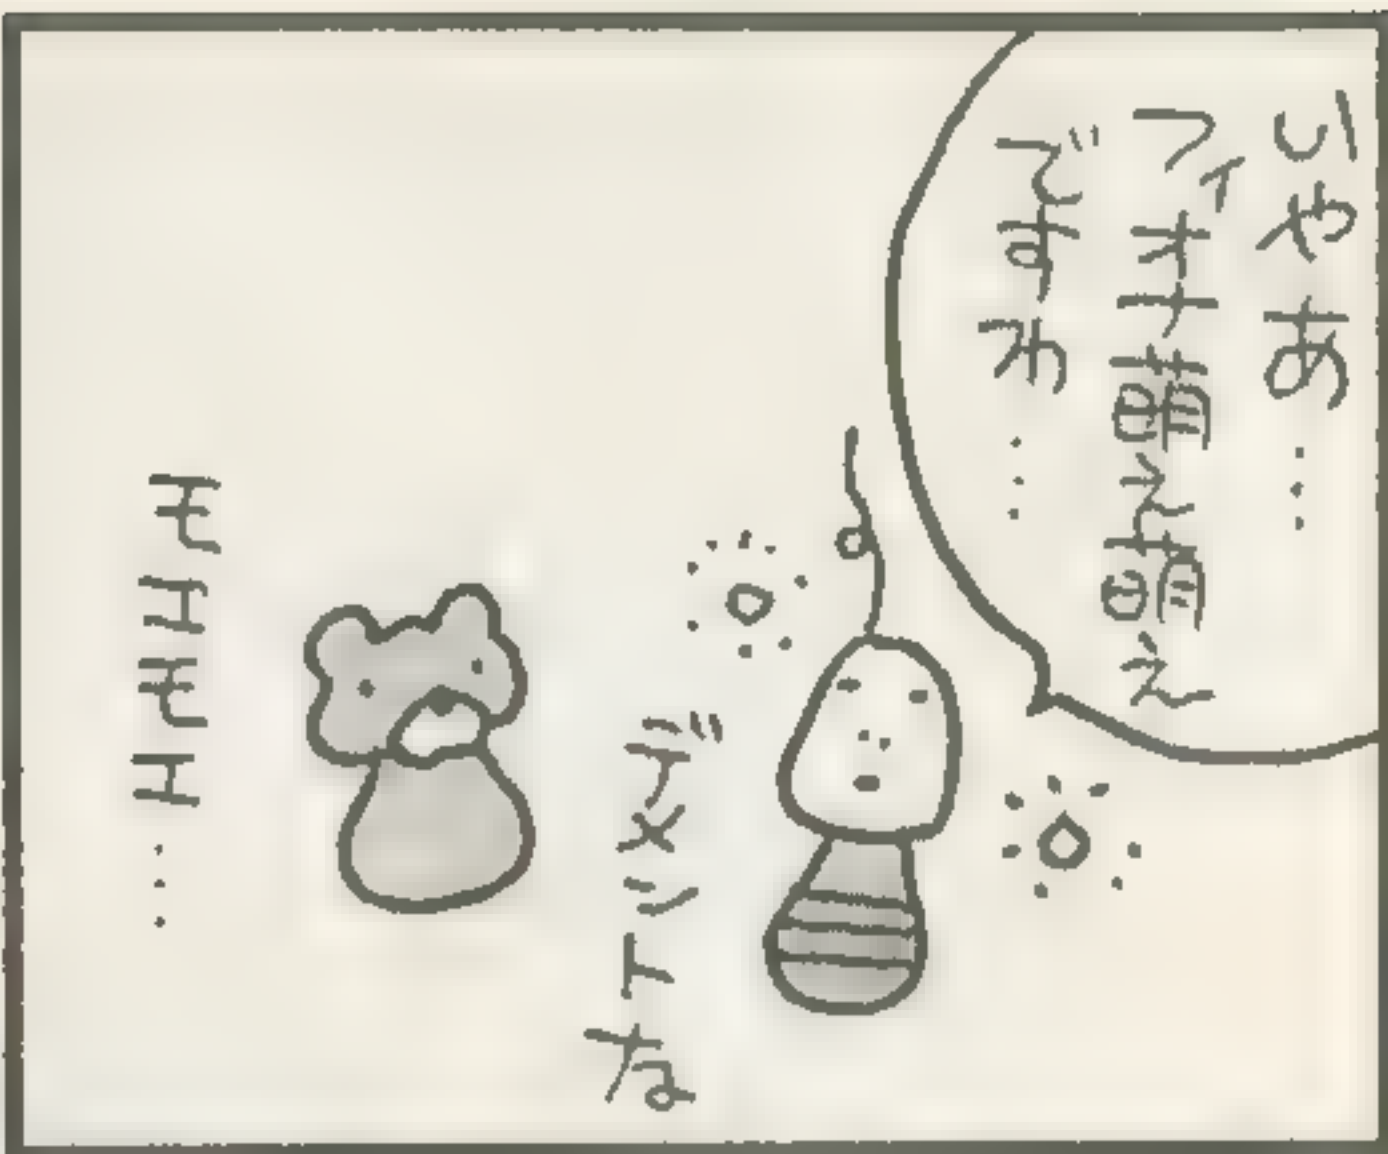 いやあ…
フィオナ萌え萌え
ですわ…
デメントな
モエモエ…